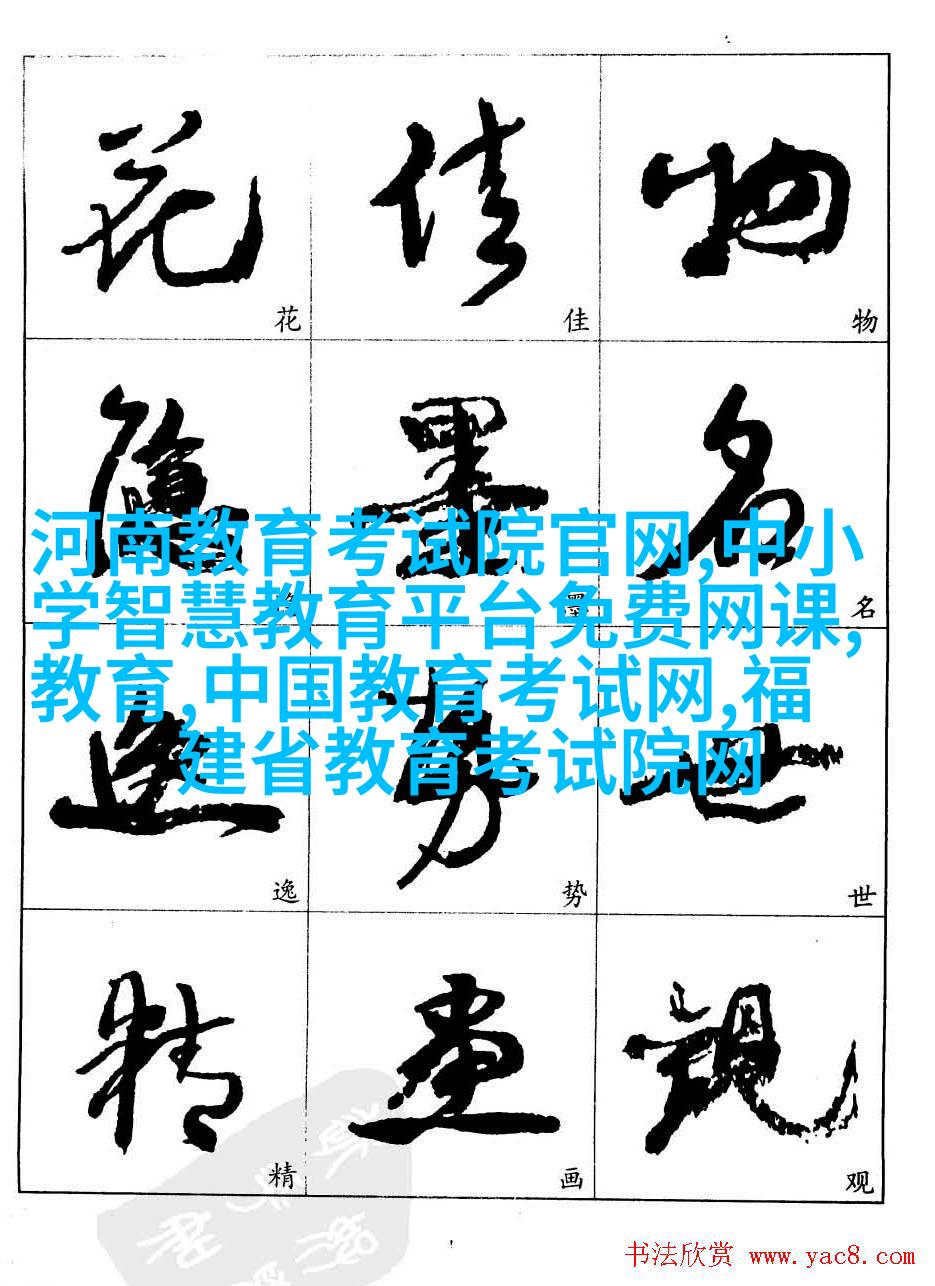 花 佳 物
花 佳 物
墨 名
墨 名
河南教育考试院官网,中小
学智慧教育平台免费网课,
教育,中国教育考试网,福
建省教育考试院网
逸 势 世
逸 势 世
精 画 观
精 画 观
书法欣赏 www.yac8.com